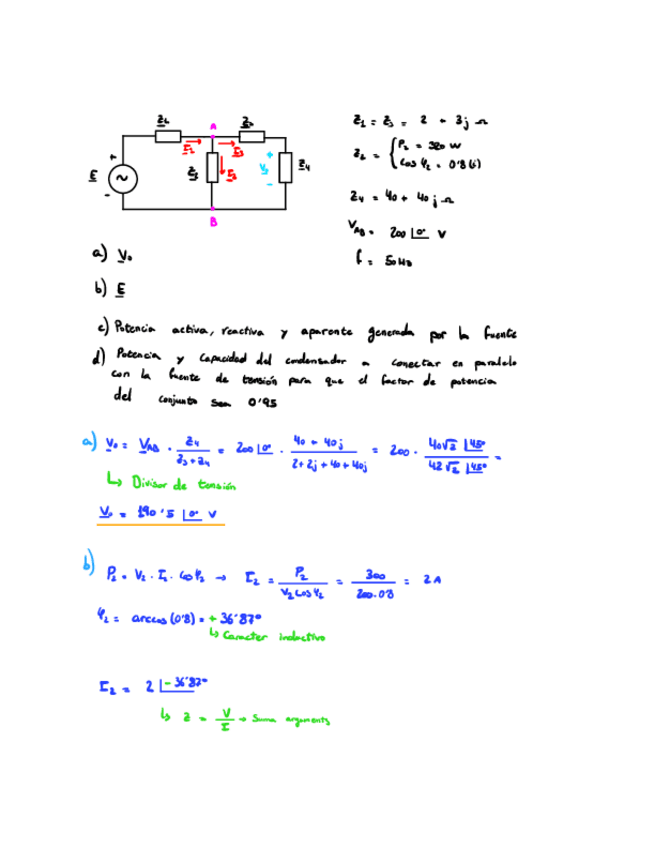 Z1 = Z3 = 2 + 3j Ω
Z2 = { P2 = 320 W
cos φ2 = 0'8 (i)
Z4 = 40 + 40j Ω
VAB = 200 |0° V
f = 50 Hz
Z1
A
Z3
I1
I3
+
E
-
Z2
I2
+
V0
-
Z4
B
a) V0
b) E
c) Potencia activa, reactiva y aparente generada por la fuente
d) Potencia y capacidad del condensador a conectar en paralelo
con la fuente de tensión para que el factor de potencia
del conjunto sea 0'95
a) V0 = VAB · Z4 / Z3 + Z4 = 200 |0° · 40 + 40j / 2 + 2j + 40 + 40j = 200 · 40√2 |45° / 42√2 |45° =
↳ Divisor de tensión
V0 = 190'5 |0° V
b) P2 = V2 · I2 · cos φ2 → I2 = P2 / V2 cos φ2 = 300 / 200 · 0'8 = 2 A
φ2 = arccos (0'8) = + 36'87°
↳ Caracter inductivo
I2 = 2 |-36'87°
↳ Z = V / I → Suma arguments